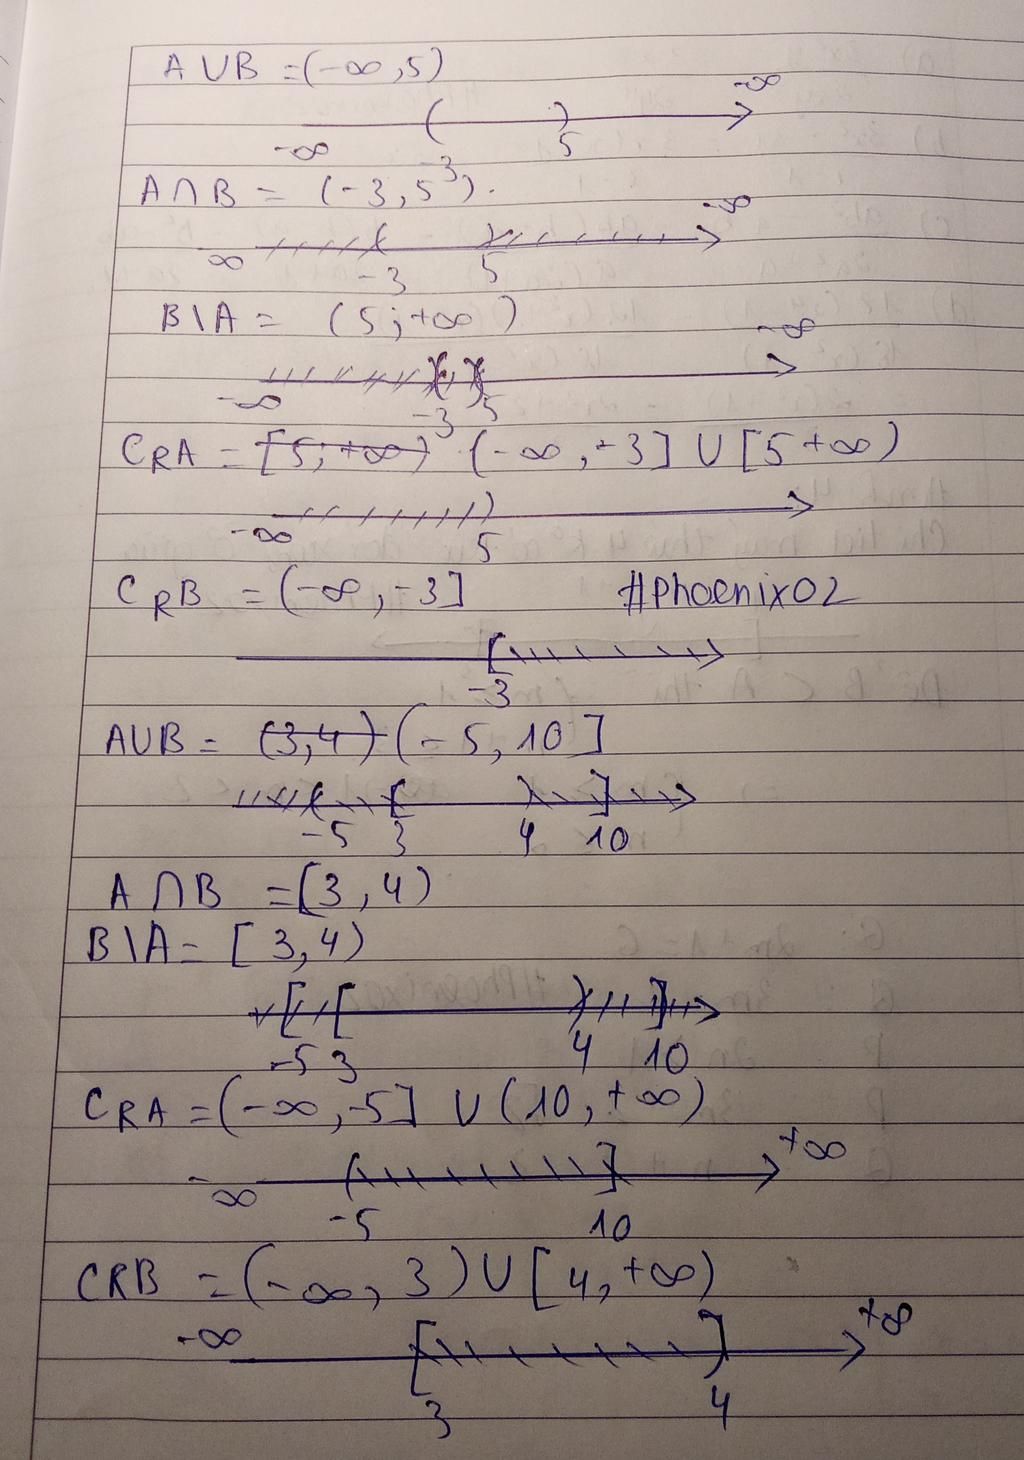 A ∪ B = (-∞, 5)
-∞ -3 5 -∞
A ∩ B = (-3, 5).
∞ -3 5 -∞
B \ A = (5; +∞)
-∞ -3 5 -∞
CRA = [5; +∞) (-∞, -3] ∪ [5 +∞)
-∞ 5
CRB = (-∞, -3] #Phoenix02
-3
A∪B = (3,4) (-5, 10]
-5 3 4 10
A ∩ B = [3, 4)
B \ A = [3, 4)
-5 3 4 10
CRA = (-∞, -5] ∪ (10, +∞)
-∞ -5 10 +∞
CRB = (-∞, 3) ∪ [4, +∞)
-∞ 3 4 +∞